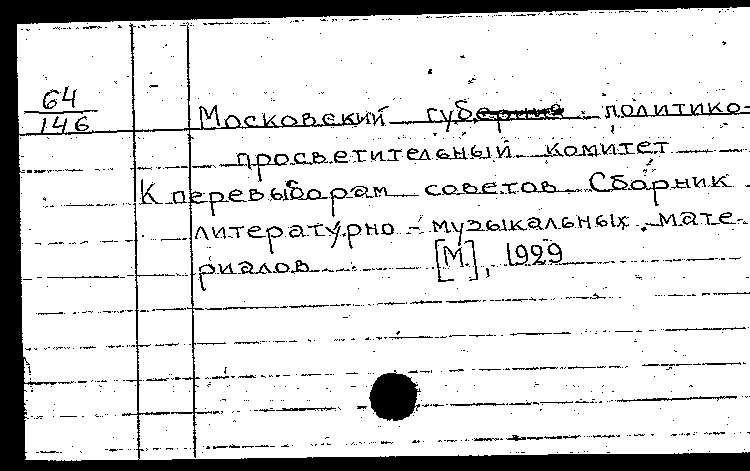 64
146
Московский губ. политико-
просветительный комитет
К перевыборам советов Сборник
литературно-музыкальных мате-
риалов [М.], 1929